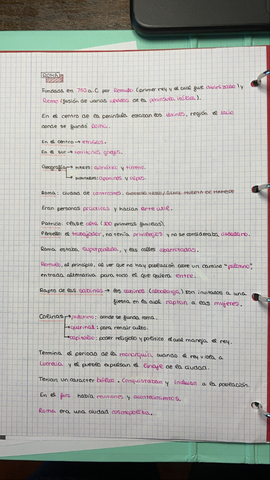 ROMA
Fundada en 753 a.C. por Rómulo (primer rey y el cual fue divinizado) y
Remo (fusión de varias aldeas de la península itálica).
En el centro de la península estaban los latinos, región el Lacio
donde se fundó Roma.
En el centro → etruscos.
En el sur → colonias griegas.
Geografía → mares: adriático y tirreno.
→ montañas: apeninos y alpes.
Roma: ciudad de
Eran personas prácticas y hacían arte útil.
Patricio: clase alta (100 primeras familias).
Plebeyo: el trabajador, no tenía privilegios y no se consideraba ciudadano.
Roma estaba superpoblada, y las calles abarrotadas.
Rómulo, al principio, al ver que no hay población abre un camino "palatino"
entrada alternativa para todo el que quiera entre.
Rapto de las sabinas → los sabinos son invitados a una
fiesta en la cual raptan a las mujeres.
Colinas → palatino: donde se funda roma.
→ quirinal: para rendir culto.
→ capitolio: poder religioso y político el cual maneja el rey.
Termina el periodo de la monarquía cuando el rey viola a
Lucrecia y el pueblo expulsan el linaje de la ciudad.
Tenían un carácter bélico. Conquistaban y incluían a la población.
En el foro había reuniones y
Roma era una ciudad cosmopolita.